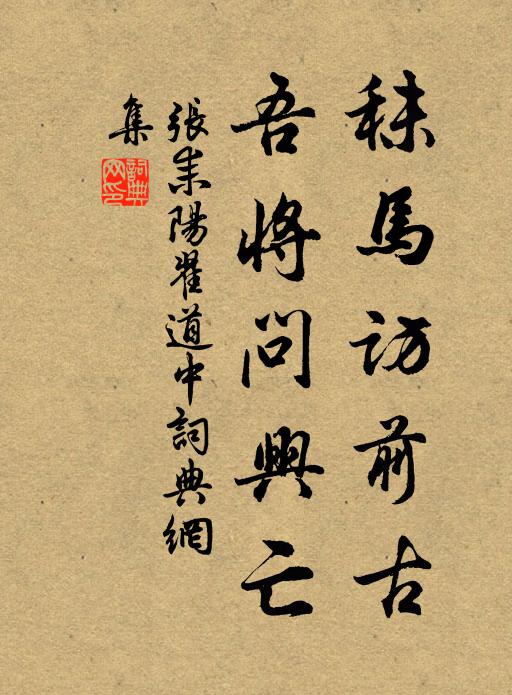 秣馬訪前古
吾將問興亡
張耒陽翟道中詞典網
集
詞典
网印